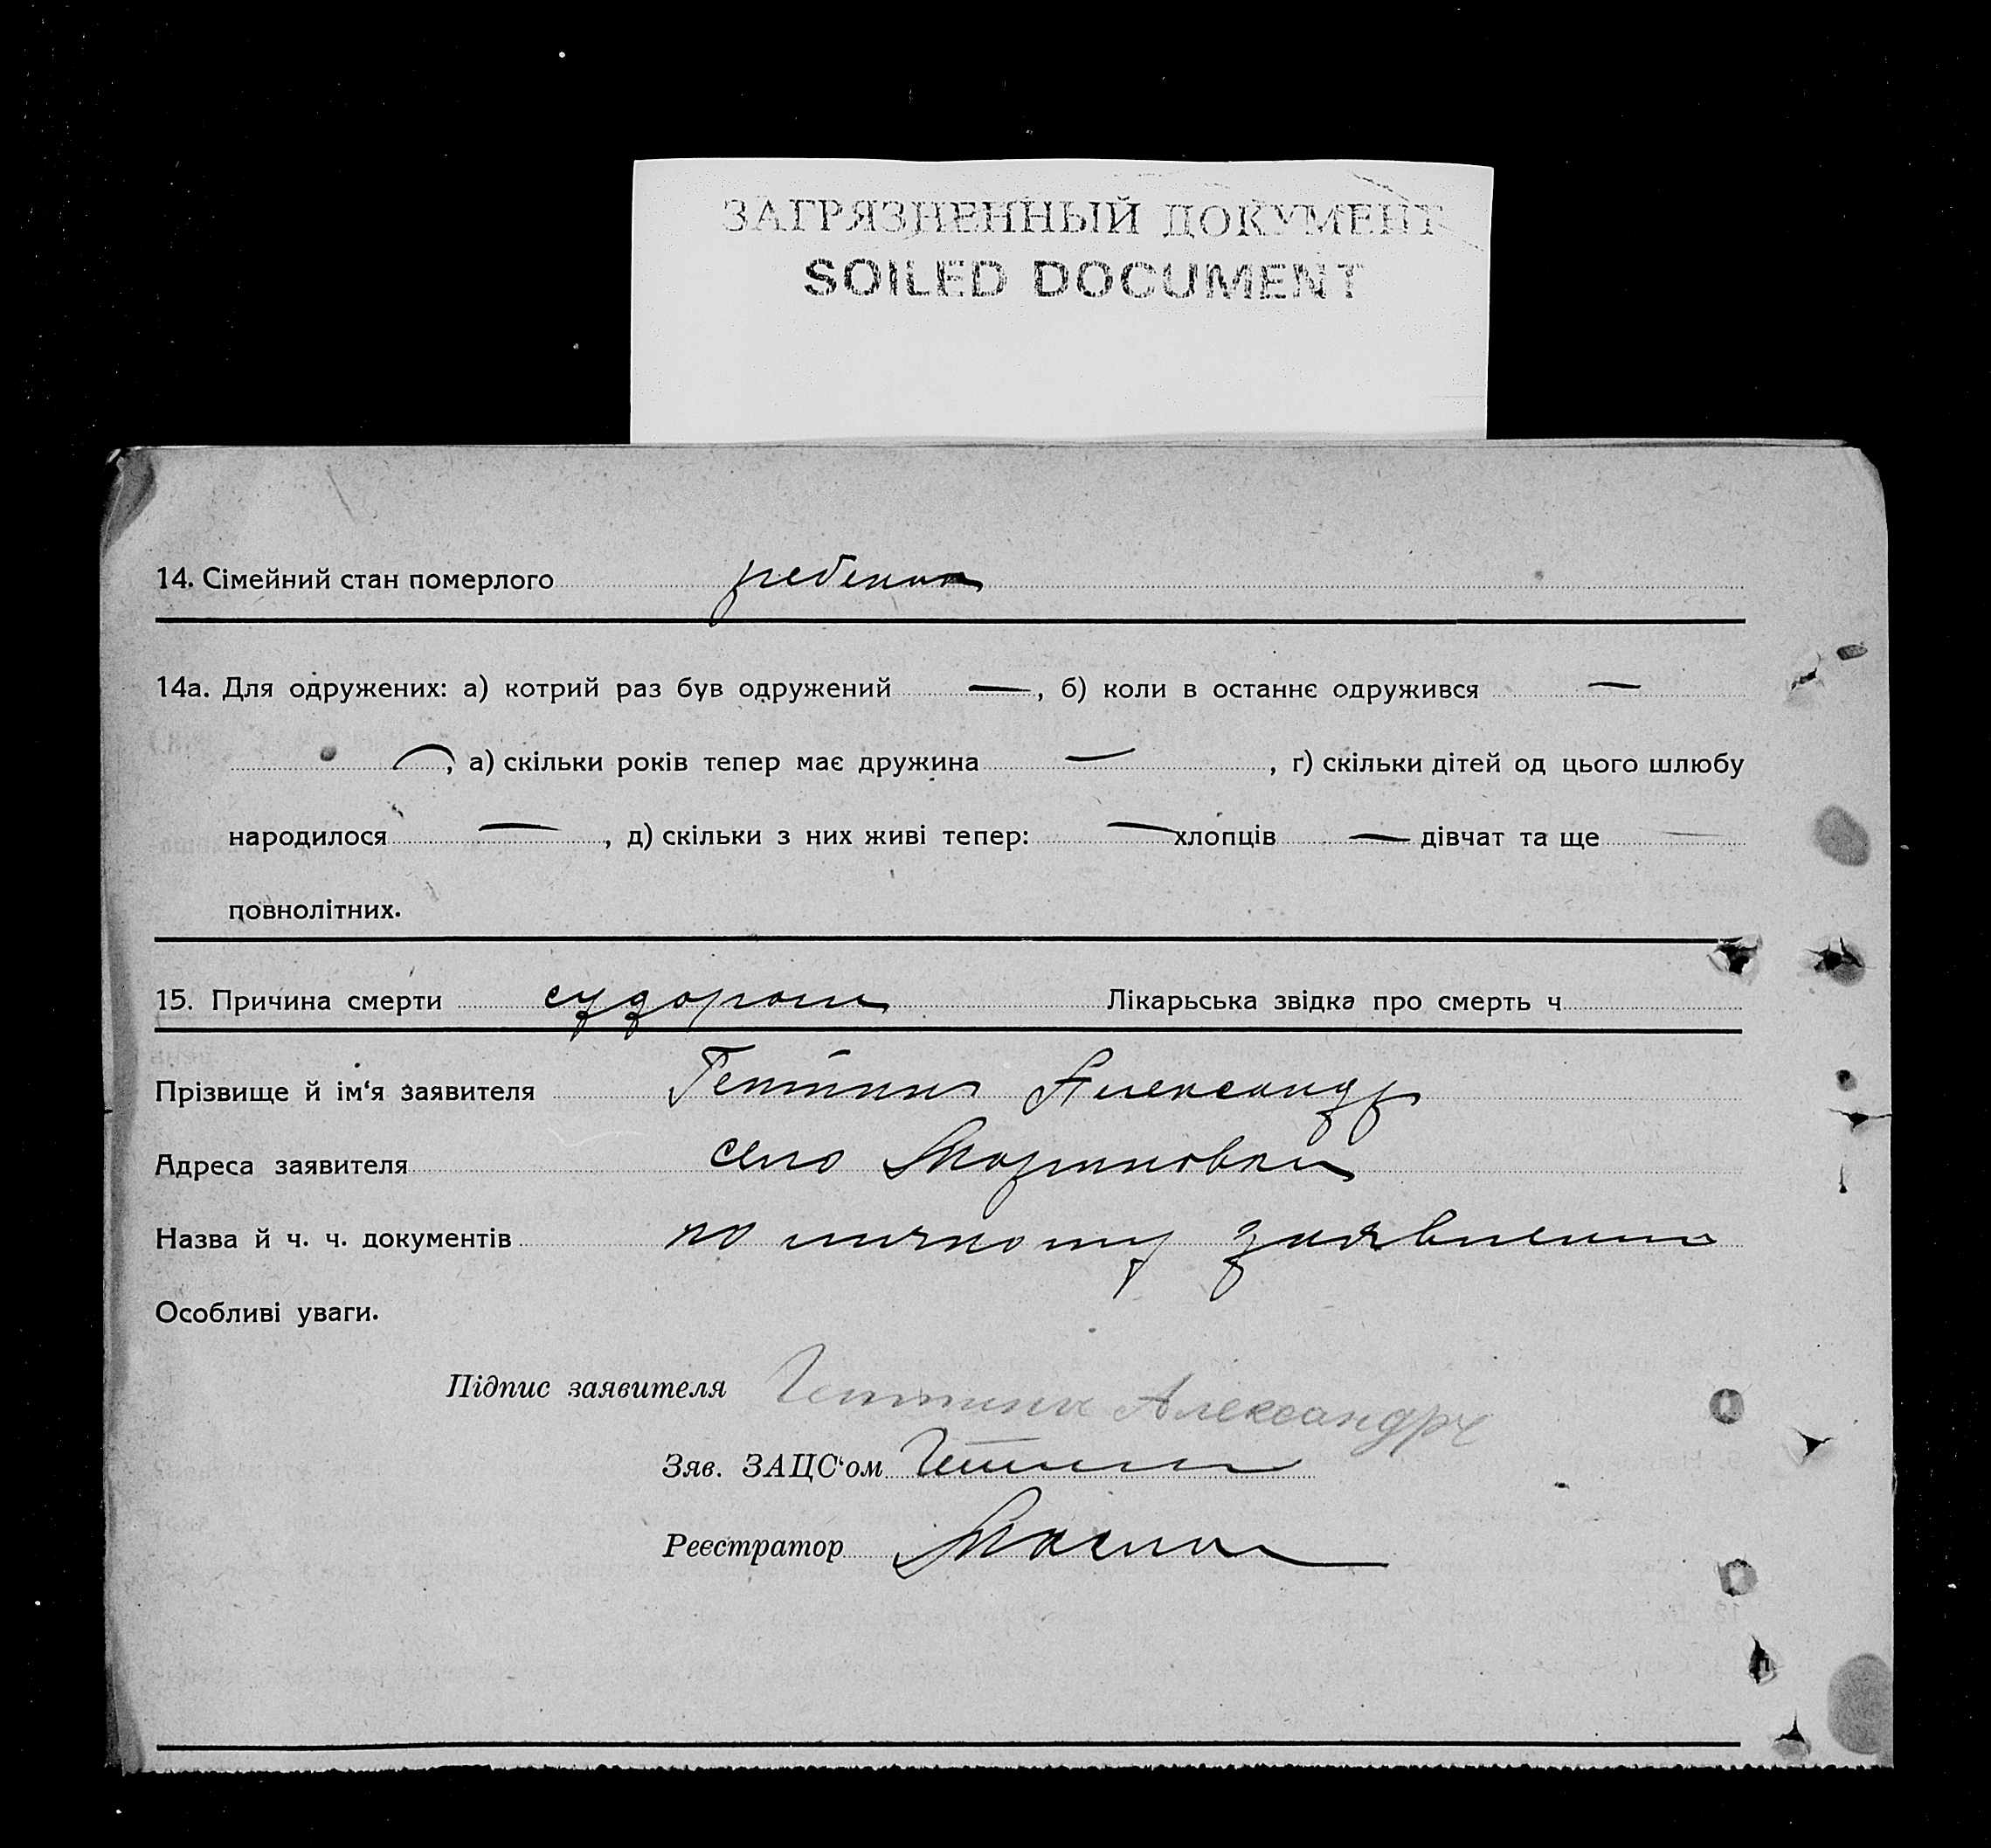 ЗАГРЯЗНЕННЫЙ ДОКУМЕНТ
SOILED DOCUMENT
14. Сімейний стан померлого ребенок
14а. Для одружених: а) котрий раз був одружений —, б) коли в останнє одружився —
—, а) скільки років тепер має дружина —, г) скільки дітей од цього шлюбу
народилося —, д) скільки з них живі тепер: — хлопців — дівчат та ще —
повнолітних.
15. Причина смерти судороги Лікарьська звідка про смерть ч.
Прізвище й ім‘я заявителя Александр
Адреса заявителя село Мариновка
Назва й ч. ч. документів по личному заявлению
Особливі уваги.
Підпис заявителя Александр
Зяв. ЗАЦС‘ом
Реєстратор